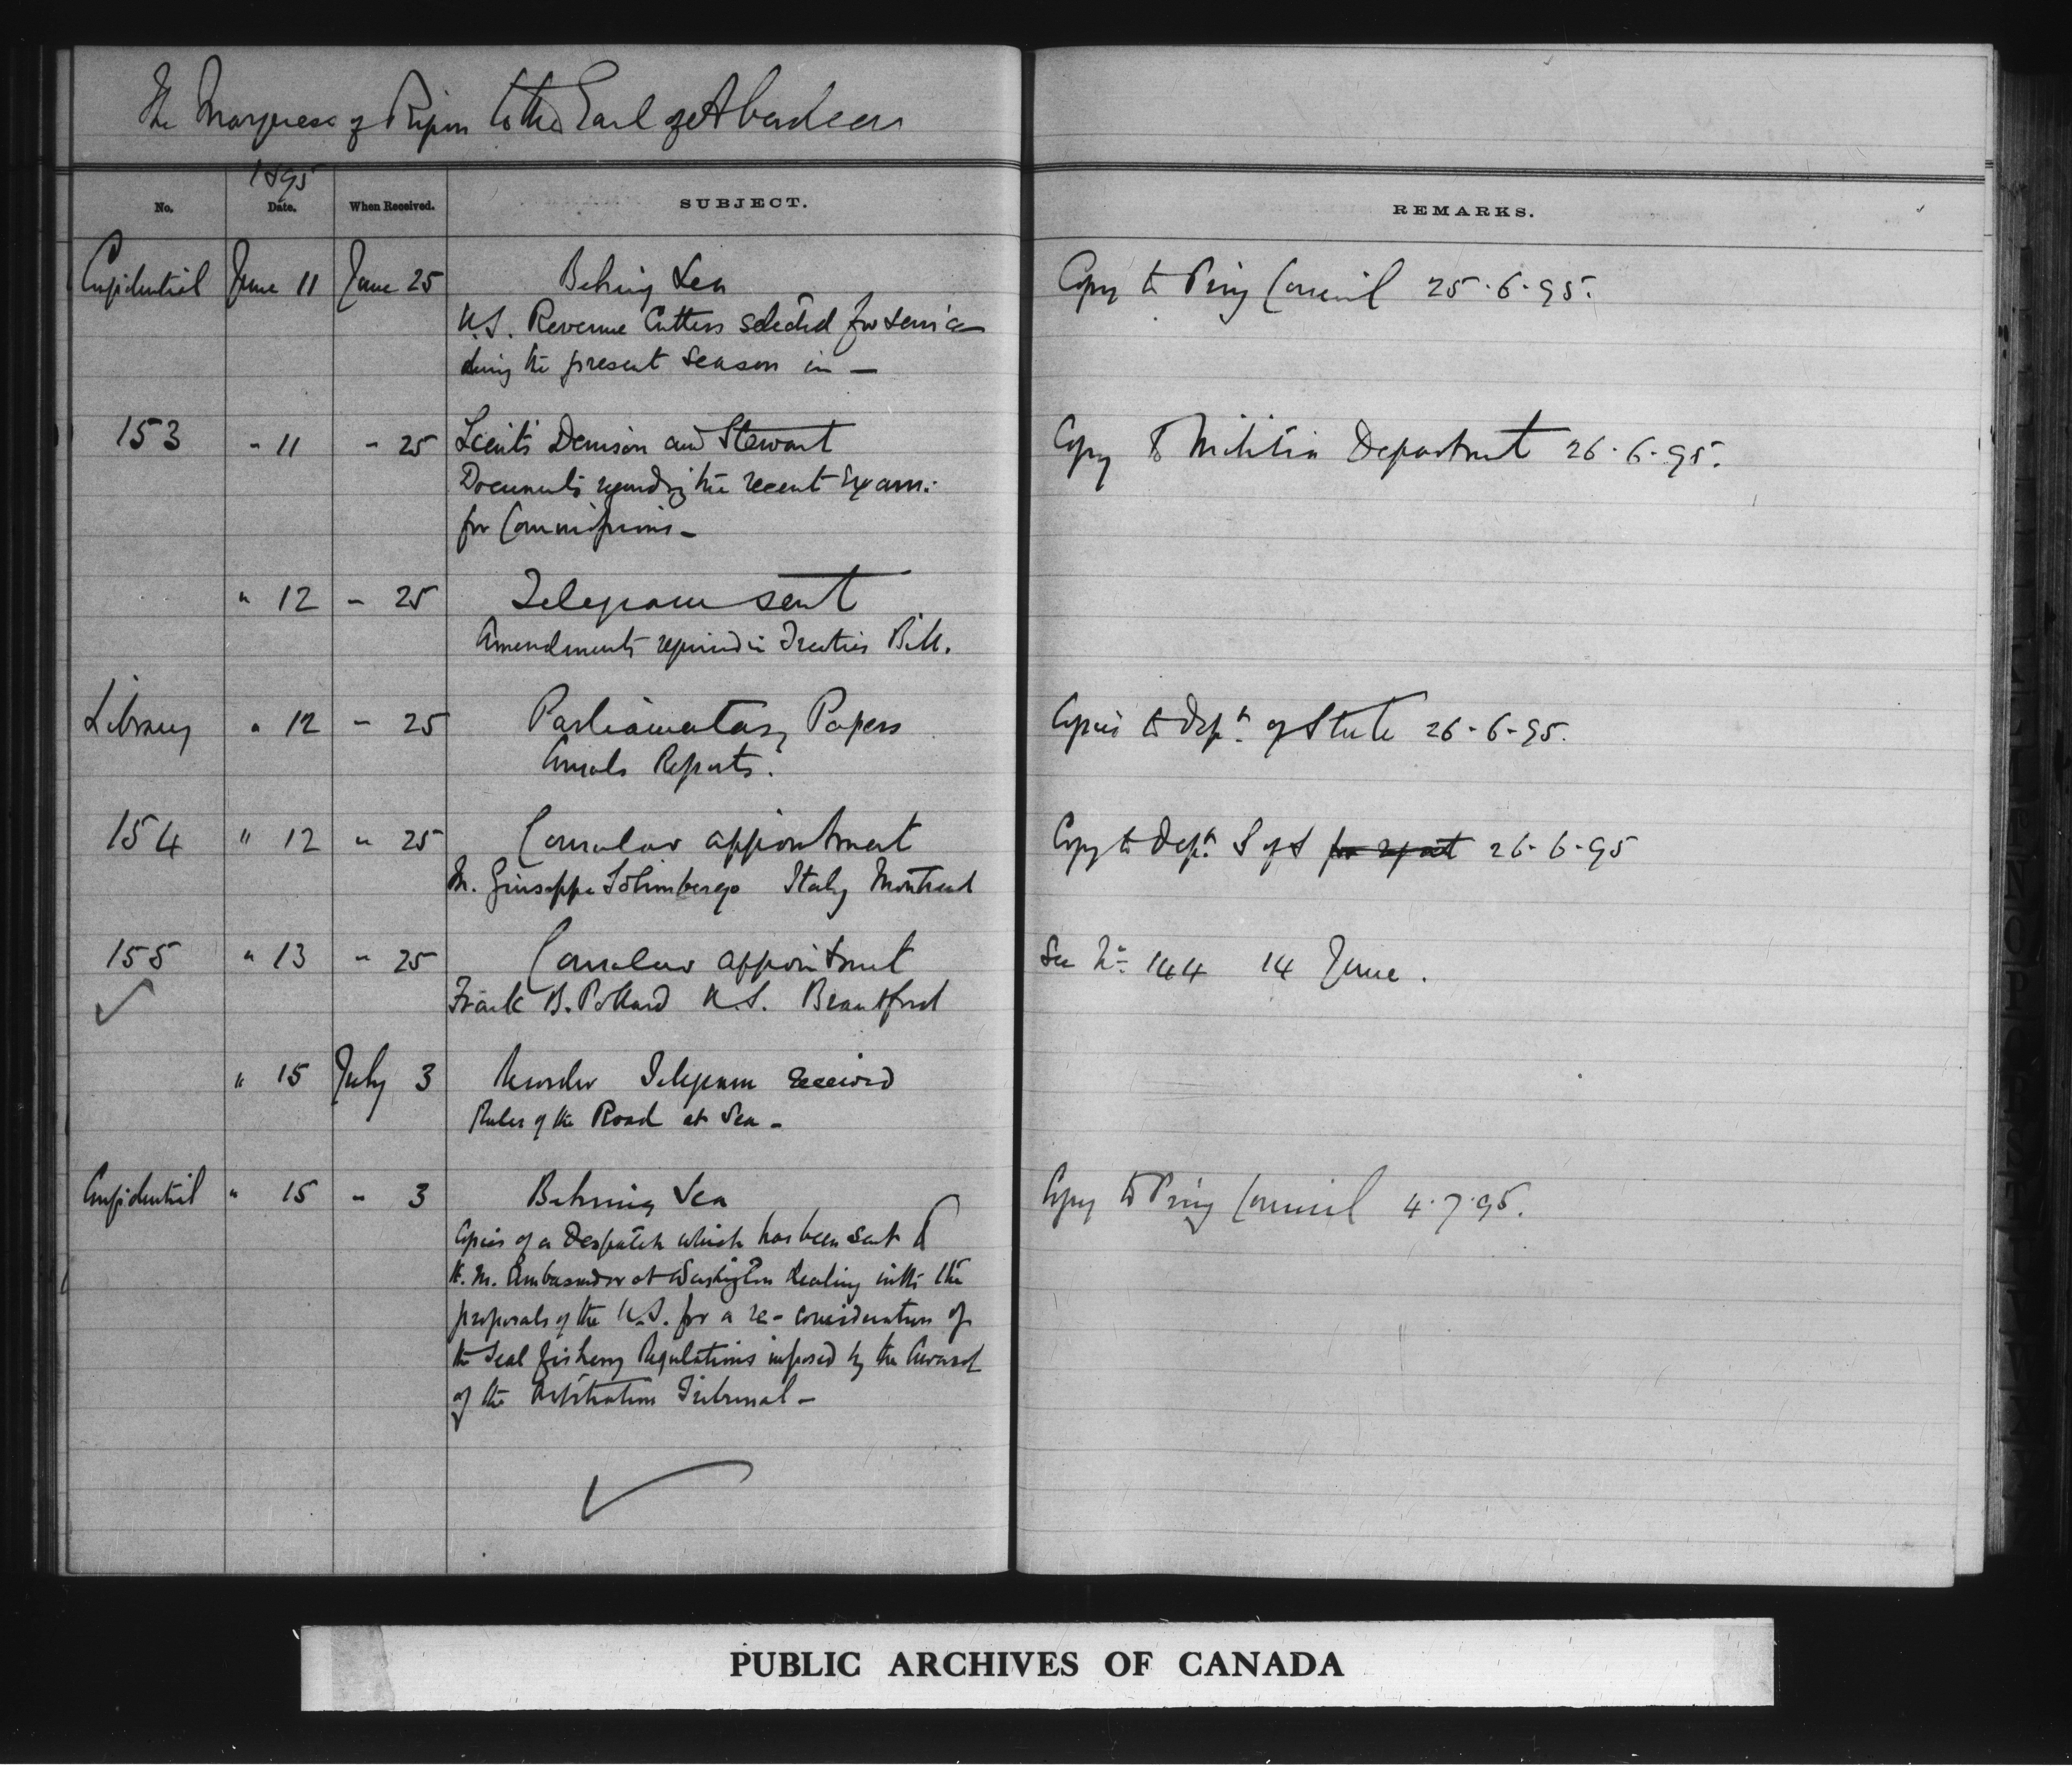 The Marquess of Ripon to the Earl of Aberdeen
1895
No. Date. When Received. SUBJECT. REMARKS.
Confidential June 11 June 25 Behring Sea Copy to Privy Council 25.6.95.
U.S. Revenue Cutters selected for service
during the present season in —
153 " 11 " 25 Lieuts Denison and Stewart Copy to Militia Department 26.6.95.
Documents regarding the recent Exam:
for Commissions —
" 12 " 25 Telegram sent
Amendments required in Treaties Bill.
Library " 12 " 25 Parliamentary Papers Copies to Dept. of State 26-6-95.
Annals Reports.
154 " 12 " 25 Consular appointment Copy to Dept. S of S for report 26-6-95
M. Giuseppe Solimbergo Italy Montreal
155 " 13 " 25 Consular appointment See No. 144 14 June.
Frank B. Pollard U.S. Brantford
" 15 July 3 Telegram received
Rules of the Road at Sea —
Confidential " 15 " 3 Behring Sea Copy to Privy Council 4.7.95.
Copies of a Despatch which has been sent to
H.M. Ambassador at Washington dealing with the
proposals of the U.S. for a re-consideration of
the Seal fishery Regulations imposed by the Award
of the Arbitration Tribunal —
PUBLIC ARCHIVES OF CANADA